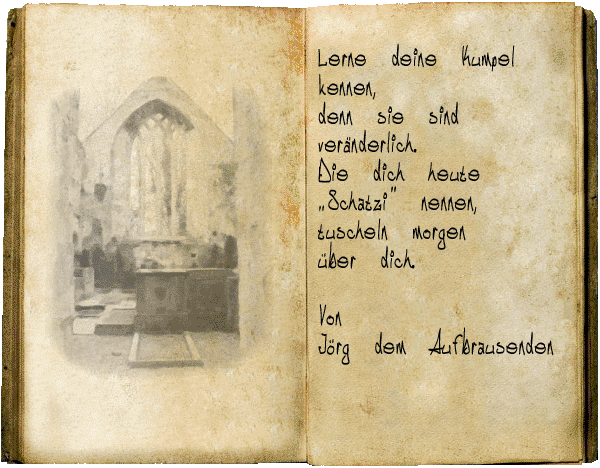 Lerne deine Kumpel
kennen,
denn sie sind
veränderlich.
Die dich heute
„Schatzi" nennen,
tuscheln morgen
über dich.
Von
Jörg dem Aufbrausenden